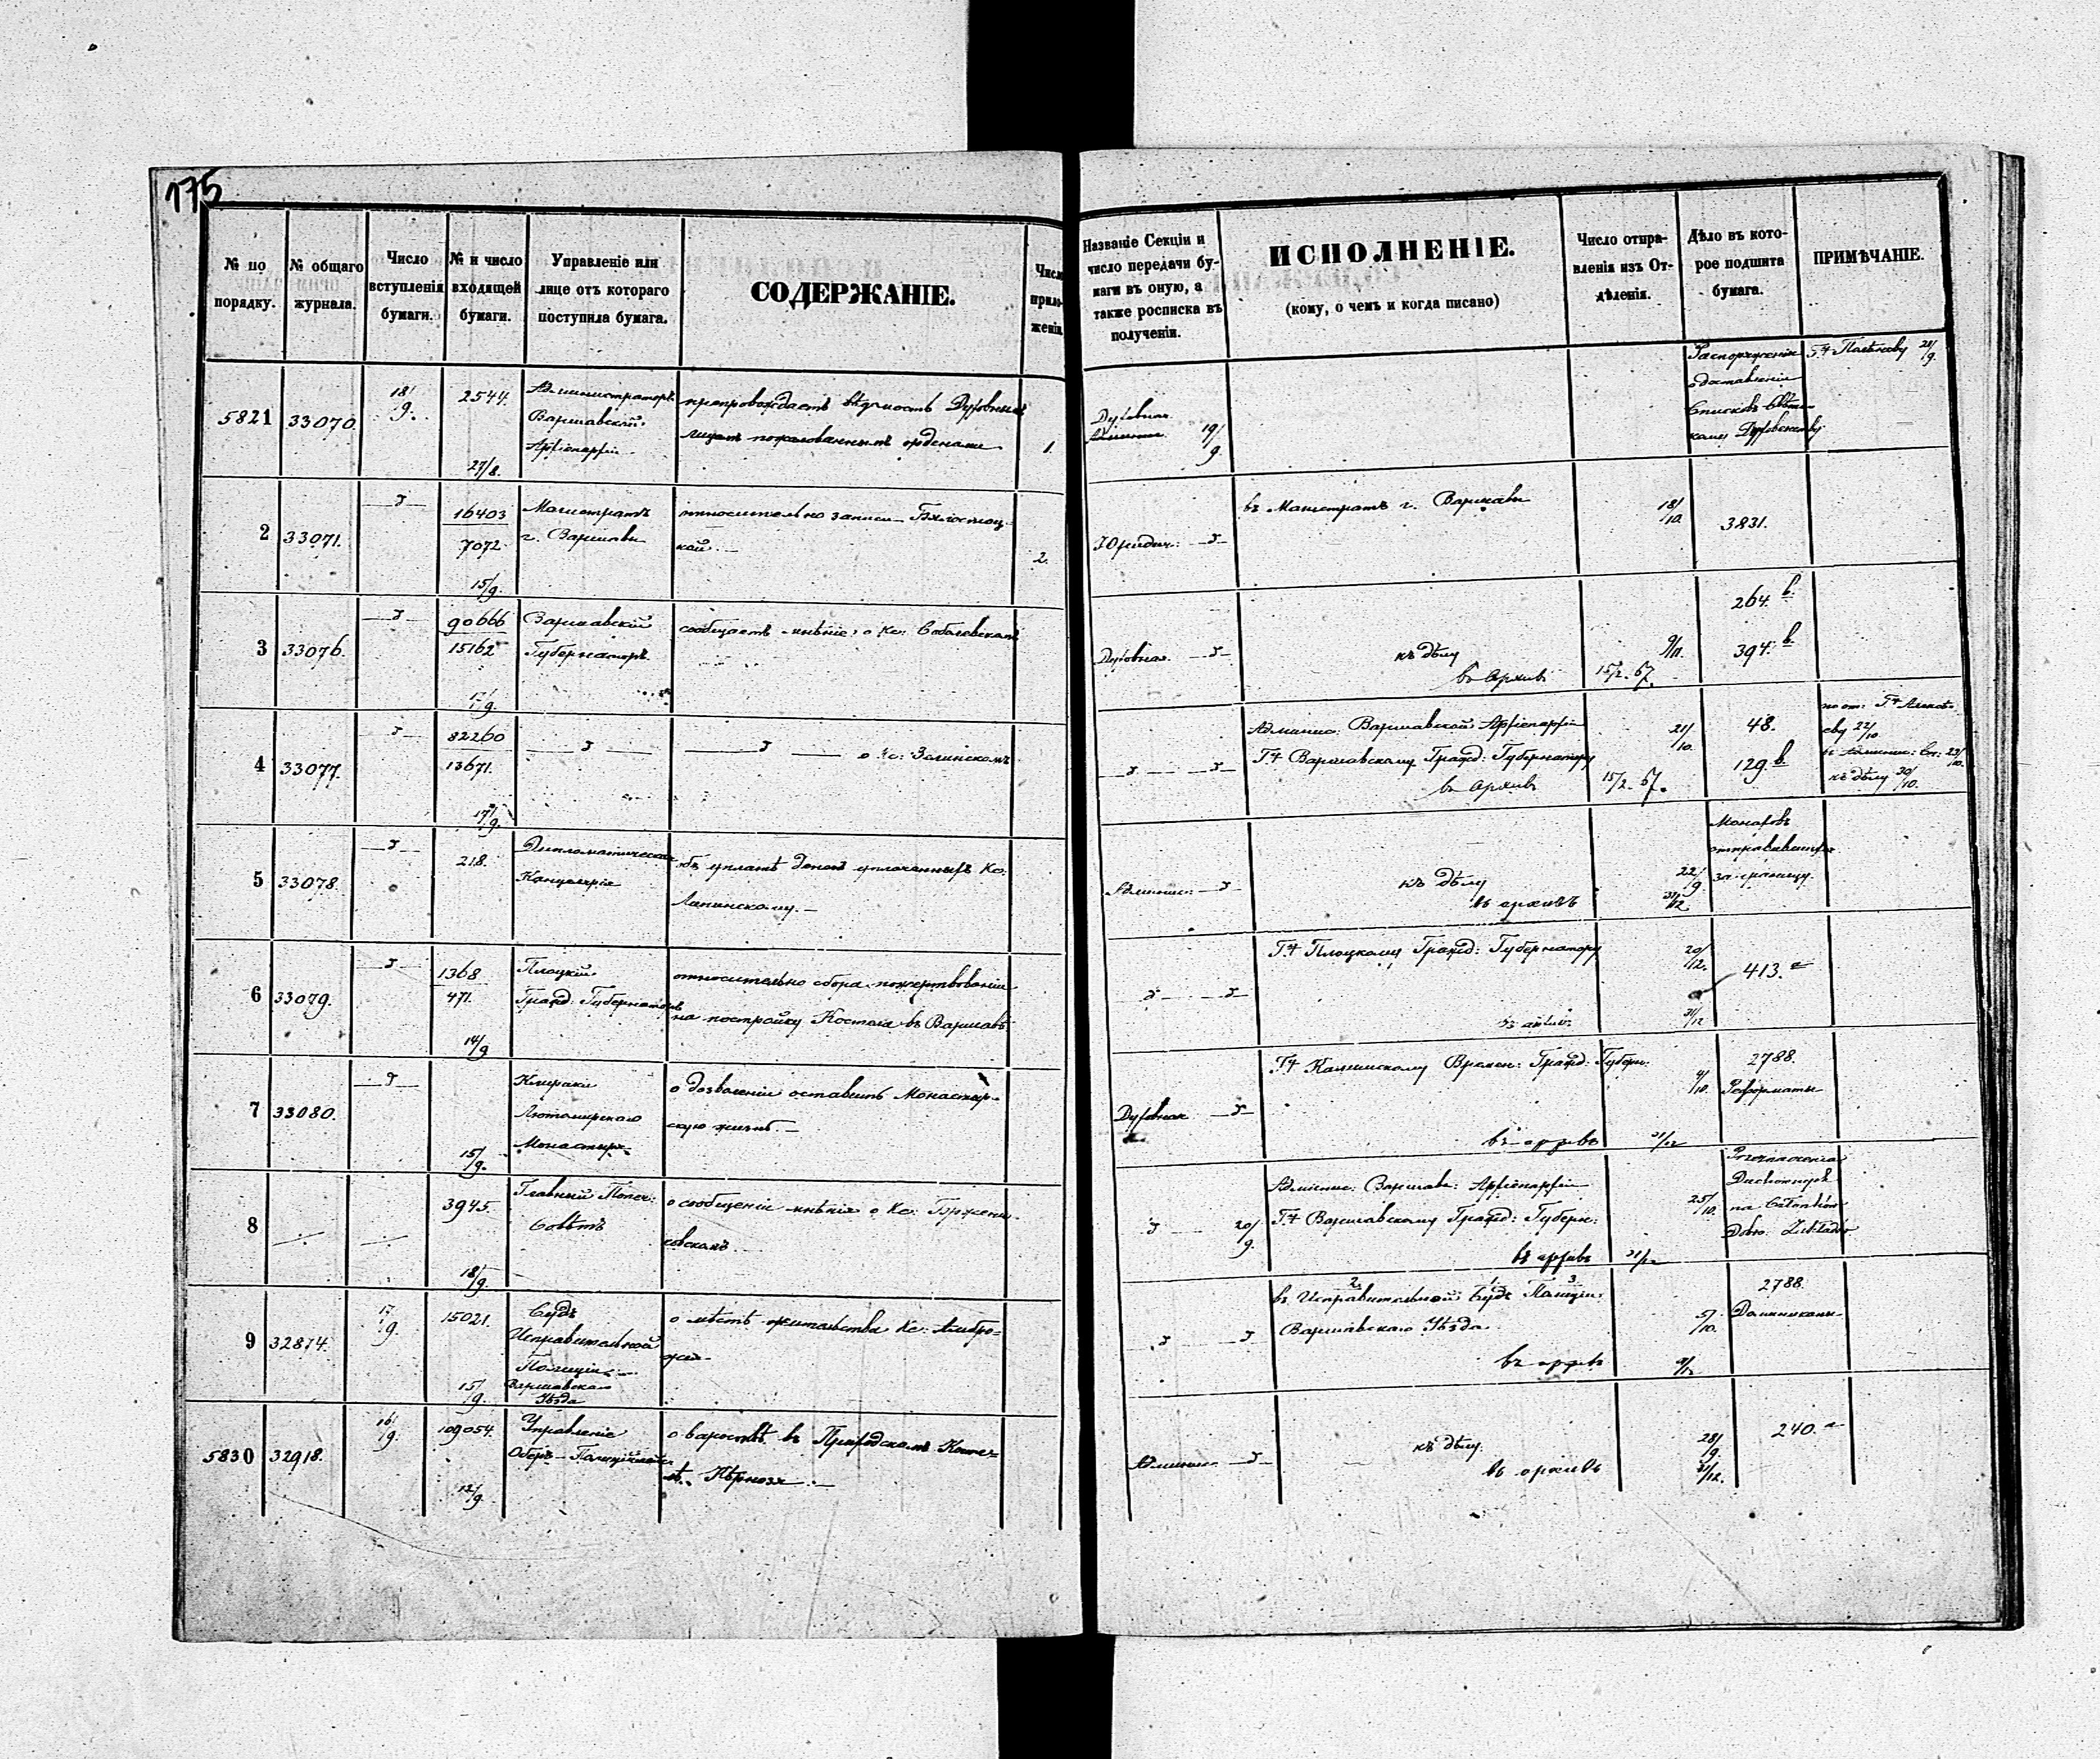 175
№ по порядку.
№ общаго журнала.
Число вступленія бумаги.
№ и число входящей бумаги.
Управленіе или лице отъ котораго поступила бумага.
СОДЕРЖАНІЕ.
Число приложенія
Названіе Секціи и число передачи бумаги въ оную, а также росписка въ полученіи.
ИСПОЛНЕНІЕ.
(кому, о чемъ и когда писано)
Число отправленія изъ Отдѣленія.
Дѣло въ которое подшита бумага.
ПРИМѢЧАНІЕ.
5821 33070 18/9. 2544. Администраторъ
Варшавской
Архіепархіи
27/8.
препровождаетъ вѣдомость Духовнымъ
лицамъ пожалованнымъ орденами
1.
Духовная
19/9
о доставленіи
Списковъ
Духовенству
2 33071. 16403
7072
15/9.
Магистратъ
г. Варшавы
относительно записи Бялоcтоц-
кой.
2.
Юридич:
въ Магистратъ г. Варшавы
18/10
3831.
3 33076. 90666
15162
17/9.
Варшавскій
Губернаторъ
сообщаетъ мнѣніе о Кс: Соболевскомъ
Духовная
къ дѣлу
въ Архивъ
9/11.
15/2. 67.
264. в.
394. в.
4 33077. 82260
13671.
17/9.
о Кс: Зелинскомъ
Админис: Варшавской Архіепархіи
Гну Варшавскому Гражд: Губернатору
въ Архивъ
21/10.
15/2. 67.
48.
129. в
22/10
къ дѣлу 30/10.
5 33078. 218.
Дипломатическая
Канцелярія
объ уплатѣ денегъ уплаченныхъ Кс:
Лапинскому.
Админис:
къ дѣлу
въ архивъ
22/9
31/12
Монаховъ
отправившихся
за границу.
6 33079. 1368
471.
14/9
Плоцкій
Гражд: Губернаторъ
относительно сбора пожертвованій
на постройку Костела въ Варшавѣ
Гну Плоцкому Гражд: Губернатору
20/12.
31/12
413. а
7 33080.
15/9.
Клирики
Лютомирскаго
Монастыря
о дозволеніи оставить Монастыр-
скую жизнь.
Духовная
Гну Калишскому Времен: Гражд: Губерн:
въ архивъ
4/10.
31/12
2788.
Реформаты
8 3945.
18/9.
Главный Попеч:
Совѣтъ
о сообщеніи мнѣнія о Кс: Бржези-
ковскомъ
20/9.
Админис: Варшав: Архіепархіи
Гну Варшавскому Гражд: Губерн:
въ архивъ
25/10.
31/12
Duchownych
na Członków
9 32874. 17/9. 15021.
15/9.
Судъ
Исправительной
Полиціи
Варшавскаго
Уѣзда
о мѣстѣ жительства Кс: Амбро-
жія
въ Исправительный Судъ Полиціи
Варшавскаго Уѣзда.
въ архивъ
5/10.
2788.
Доминиканы
5830 32918. 16/9. 109054.
12/9.
Управленіе
Оберъ-Полиціймейстера
Админис:
къ дѣлу.
въ архивъ
28/9.
31/12.
240. а